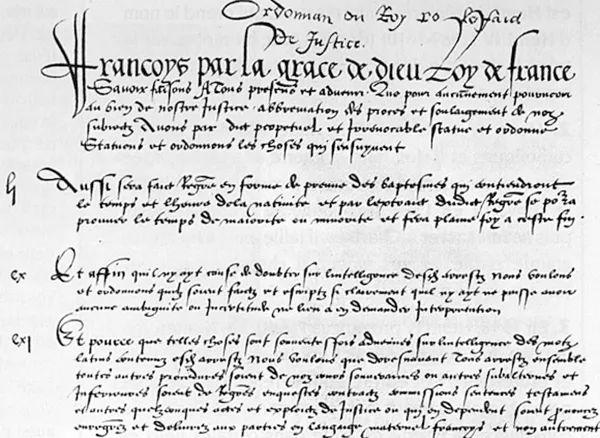 Ordonnan du Roy
de Justice.
Francoys par la grace de dieu Roy de france
Scavoir faisons A Tous presens et advenir Que pour aucunement pourveoir
au bien de nostre Justice abbreviation des proces et soulagement de noz
subiectz Avons par edict perpetuel et Irrevocable statue et ordonne
Statuons et ordonnons les choses qui sensuyvent
li Aussi sera faict Regre en forme de preuve des baptesmes qui contiendront
le temps et lheure de la nativite et par lextraict dudict Regre se pora
prouver le temps de maiorite ou minorite et fera plaine foy a ceste fin
cx Et affin quil ny ayt cause de doubter sur lintelligence desdz arrestz Nous voulons
et ordonnons quilz soient faictz et escriptz si clairement quil ny ayt ne puisse avoir
aucune ambiguite ou Incertitude ne lieu a en demander Interpretation
cxi Et pource que telles choses sont souventesfois advenues sur lintelligence des motz
latins contenuz esdz arrestz Nous voulons que doresnavant Tous arrestz ensemble
toutes autres procedures soient de noz cours souveraines ou autres subalternes et
Inferieures soient de Regres enquestes contractz commissions sentences testamens
et autres quelzconques actes et exploictz de Justice ou qui en dependent soient prononcez
enregrez et delivrez aux parties en langaige maternel francoys et non autrement